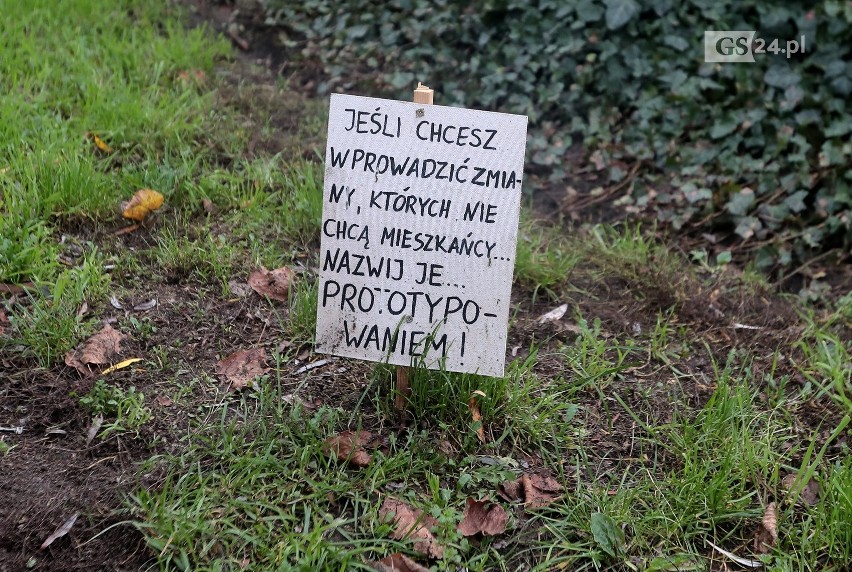 GS24.pl
JEŚLI CHCESZ
WPROWADZIĆ ZMIA-
NY, KTÓRYCH NIE
CHCĄ MIESZKAŃCY...
NAZWIJ JE....
PROTOTYPO-
WANIEM!